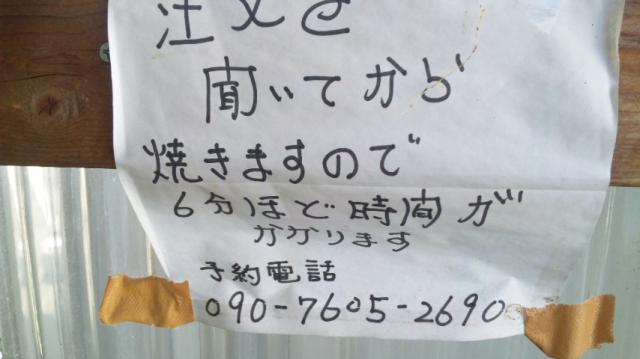 注文を
聞いてから
焼きますので
6分ほど時間が
かかります
予約電話
090-7605-2690